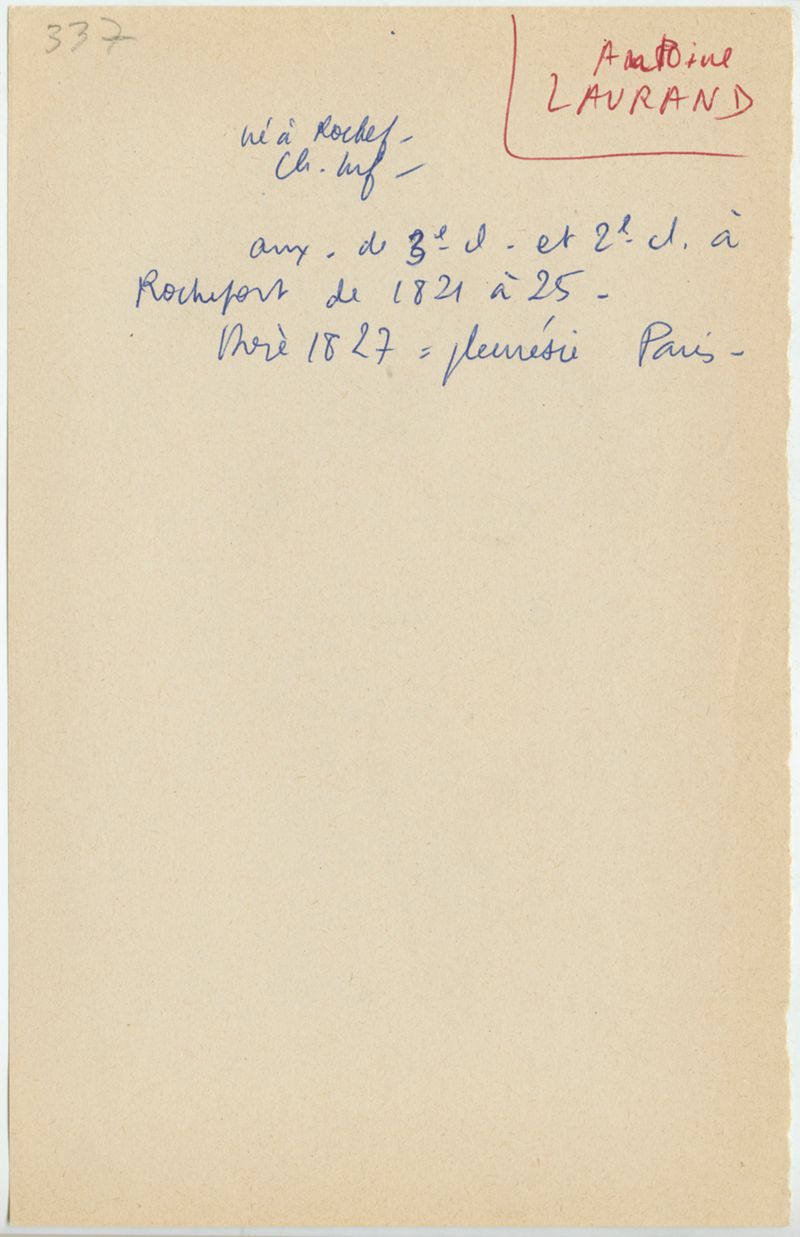 337
Antoine
LAURAND
né à Rochef -
Ch. Inf -
aux. de 3e cl - et 2e cl. à
Rochefort de 1821 à 25 -
Thèse 1827 = pleurésie Paris -